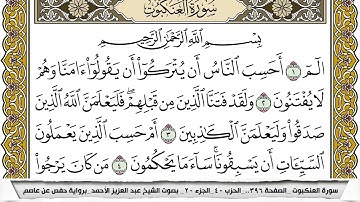 سُورَةُ العَنكَبُوتِ
بِسْمِ اللَّهِ الرَّحْمَٰنِ الرَّحِيمِ
الٓمٓ ١ أَحَسِبَ النَّاسُ أَن يُتْرَكُوٓا۟ أَن يَقُولُوٓا۟ ءَامَنَّا وَهُمْ
لَا يُفْتَنُونَ ٢ وَلَقَدْ فَتَنَّا ٱلَّذِينَ مِن قَبْلِهِمْ ۖ فَلَيَعْلَمَنَّ ٱللَّهُ ٱلَّذِينَ
صَدَقُوا۟ وَلَيَعْلَمَنَّ ٱلْكَٰذِبِينَ ٣ أَمْ حَسِبَ ٱلَّذِينَ يَعْمَلُونَ
ٱلسَّيِّـَٔاتِ أَن يَسْبِقُونَا ۚ سَآءَ مَا يَحْكُمُونَ ٤ مَن كَانَ يَرْجُوا۟
سورة العنكبوت _الصفحة ٣٩٦_ الحزب ٤٠_ الجزء ٢٠_ بصوت الشيخ عبد العزيز الأحمد_برواية حفص عن عاصم